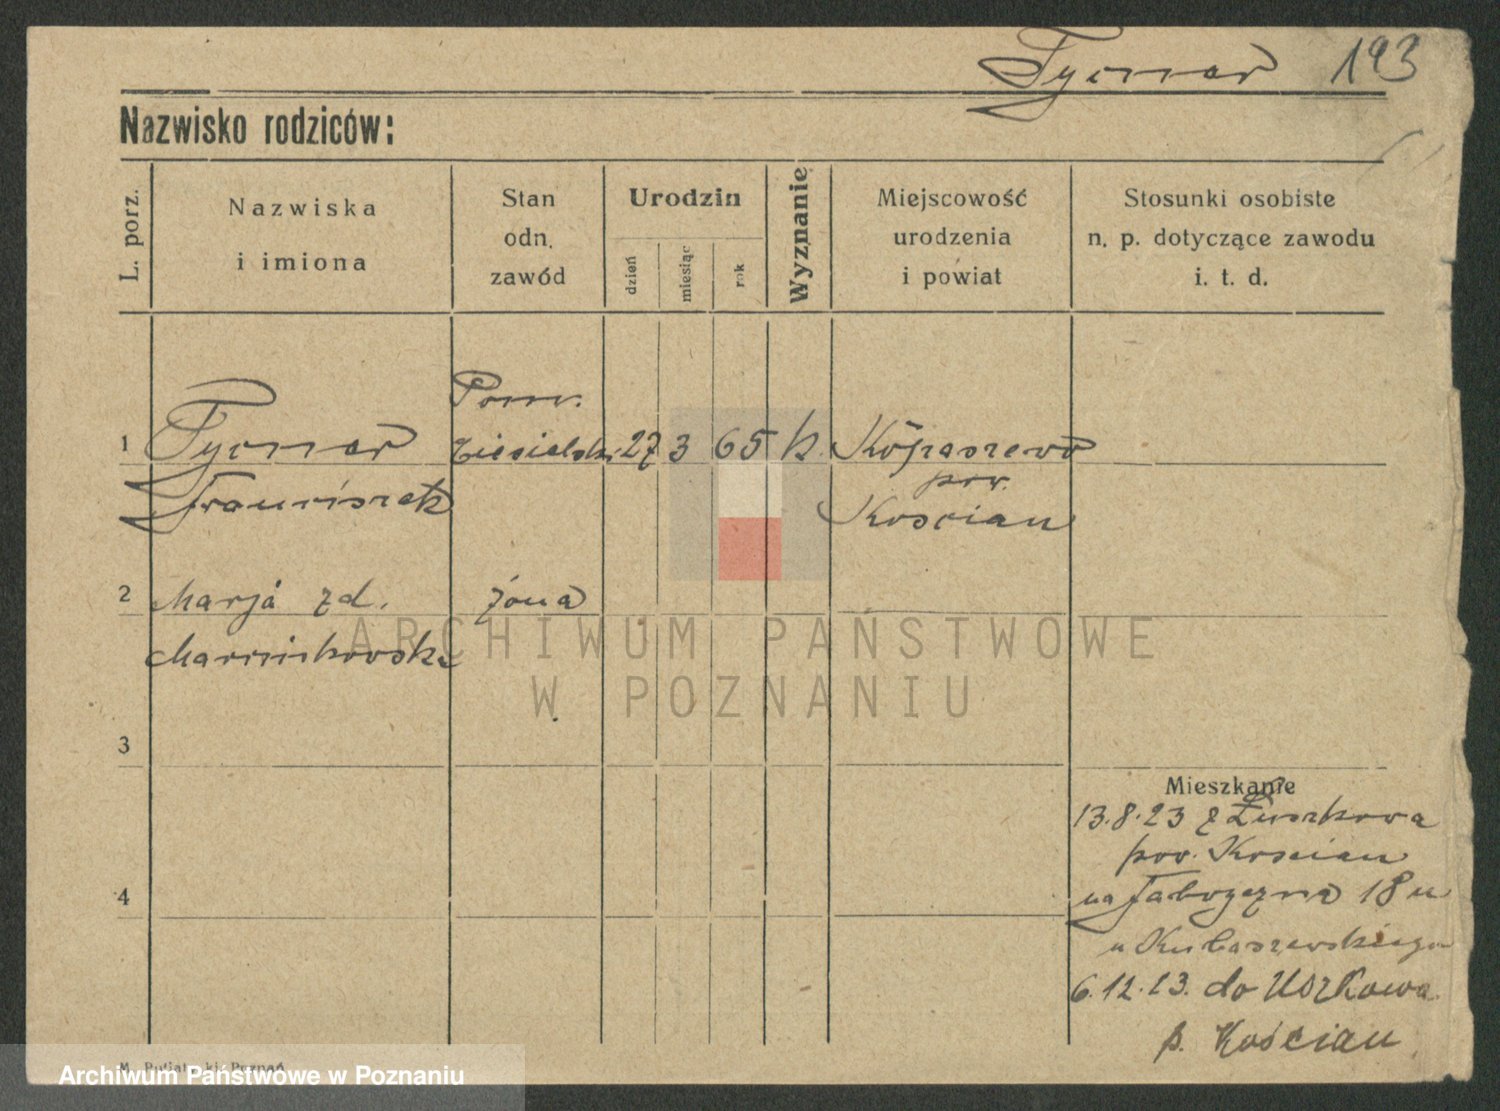 Tycner 193
Nazwisko rodziców:
L. porz.
Nazwiska
i imiona
Stan
odn.
zawód
Urodzin
dzień
miesiąc
rok
Wyznanie
Miejscowość
urodzenia
i powiat
Stosunki osobiste
n. p. dotyczące zawodu
i. t. d.
Pom.
1 Tycner ciesielski 27 3 65 k.
Franciszek
pow.
Kościan
2 Marja zd. żona
ARCHIWUM PAŃSTWOWE
W POZNANIU
3
Mieszkanie
13.8.23 z
pow. Kościan
4
na Fabryczną 18 u
u Kubaszewskiego
6.12.23. do
p. Kościan
Archiwum Państwowe w Poznaniu